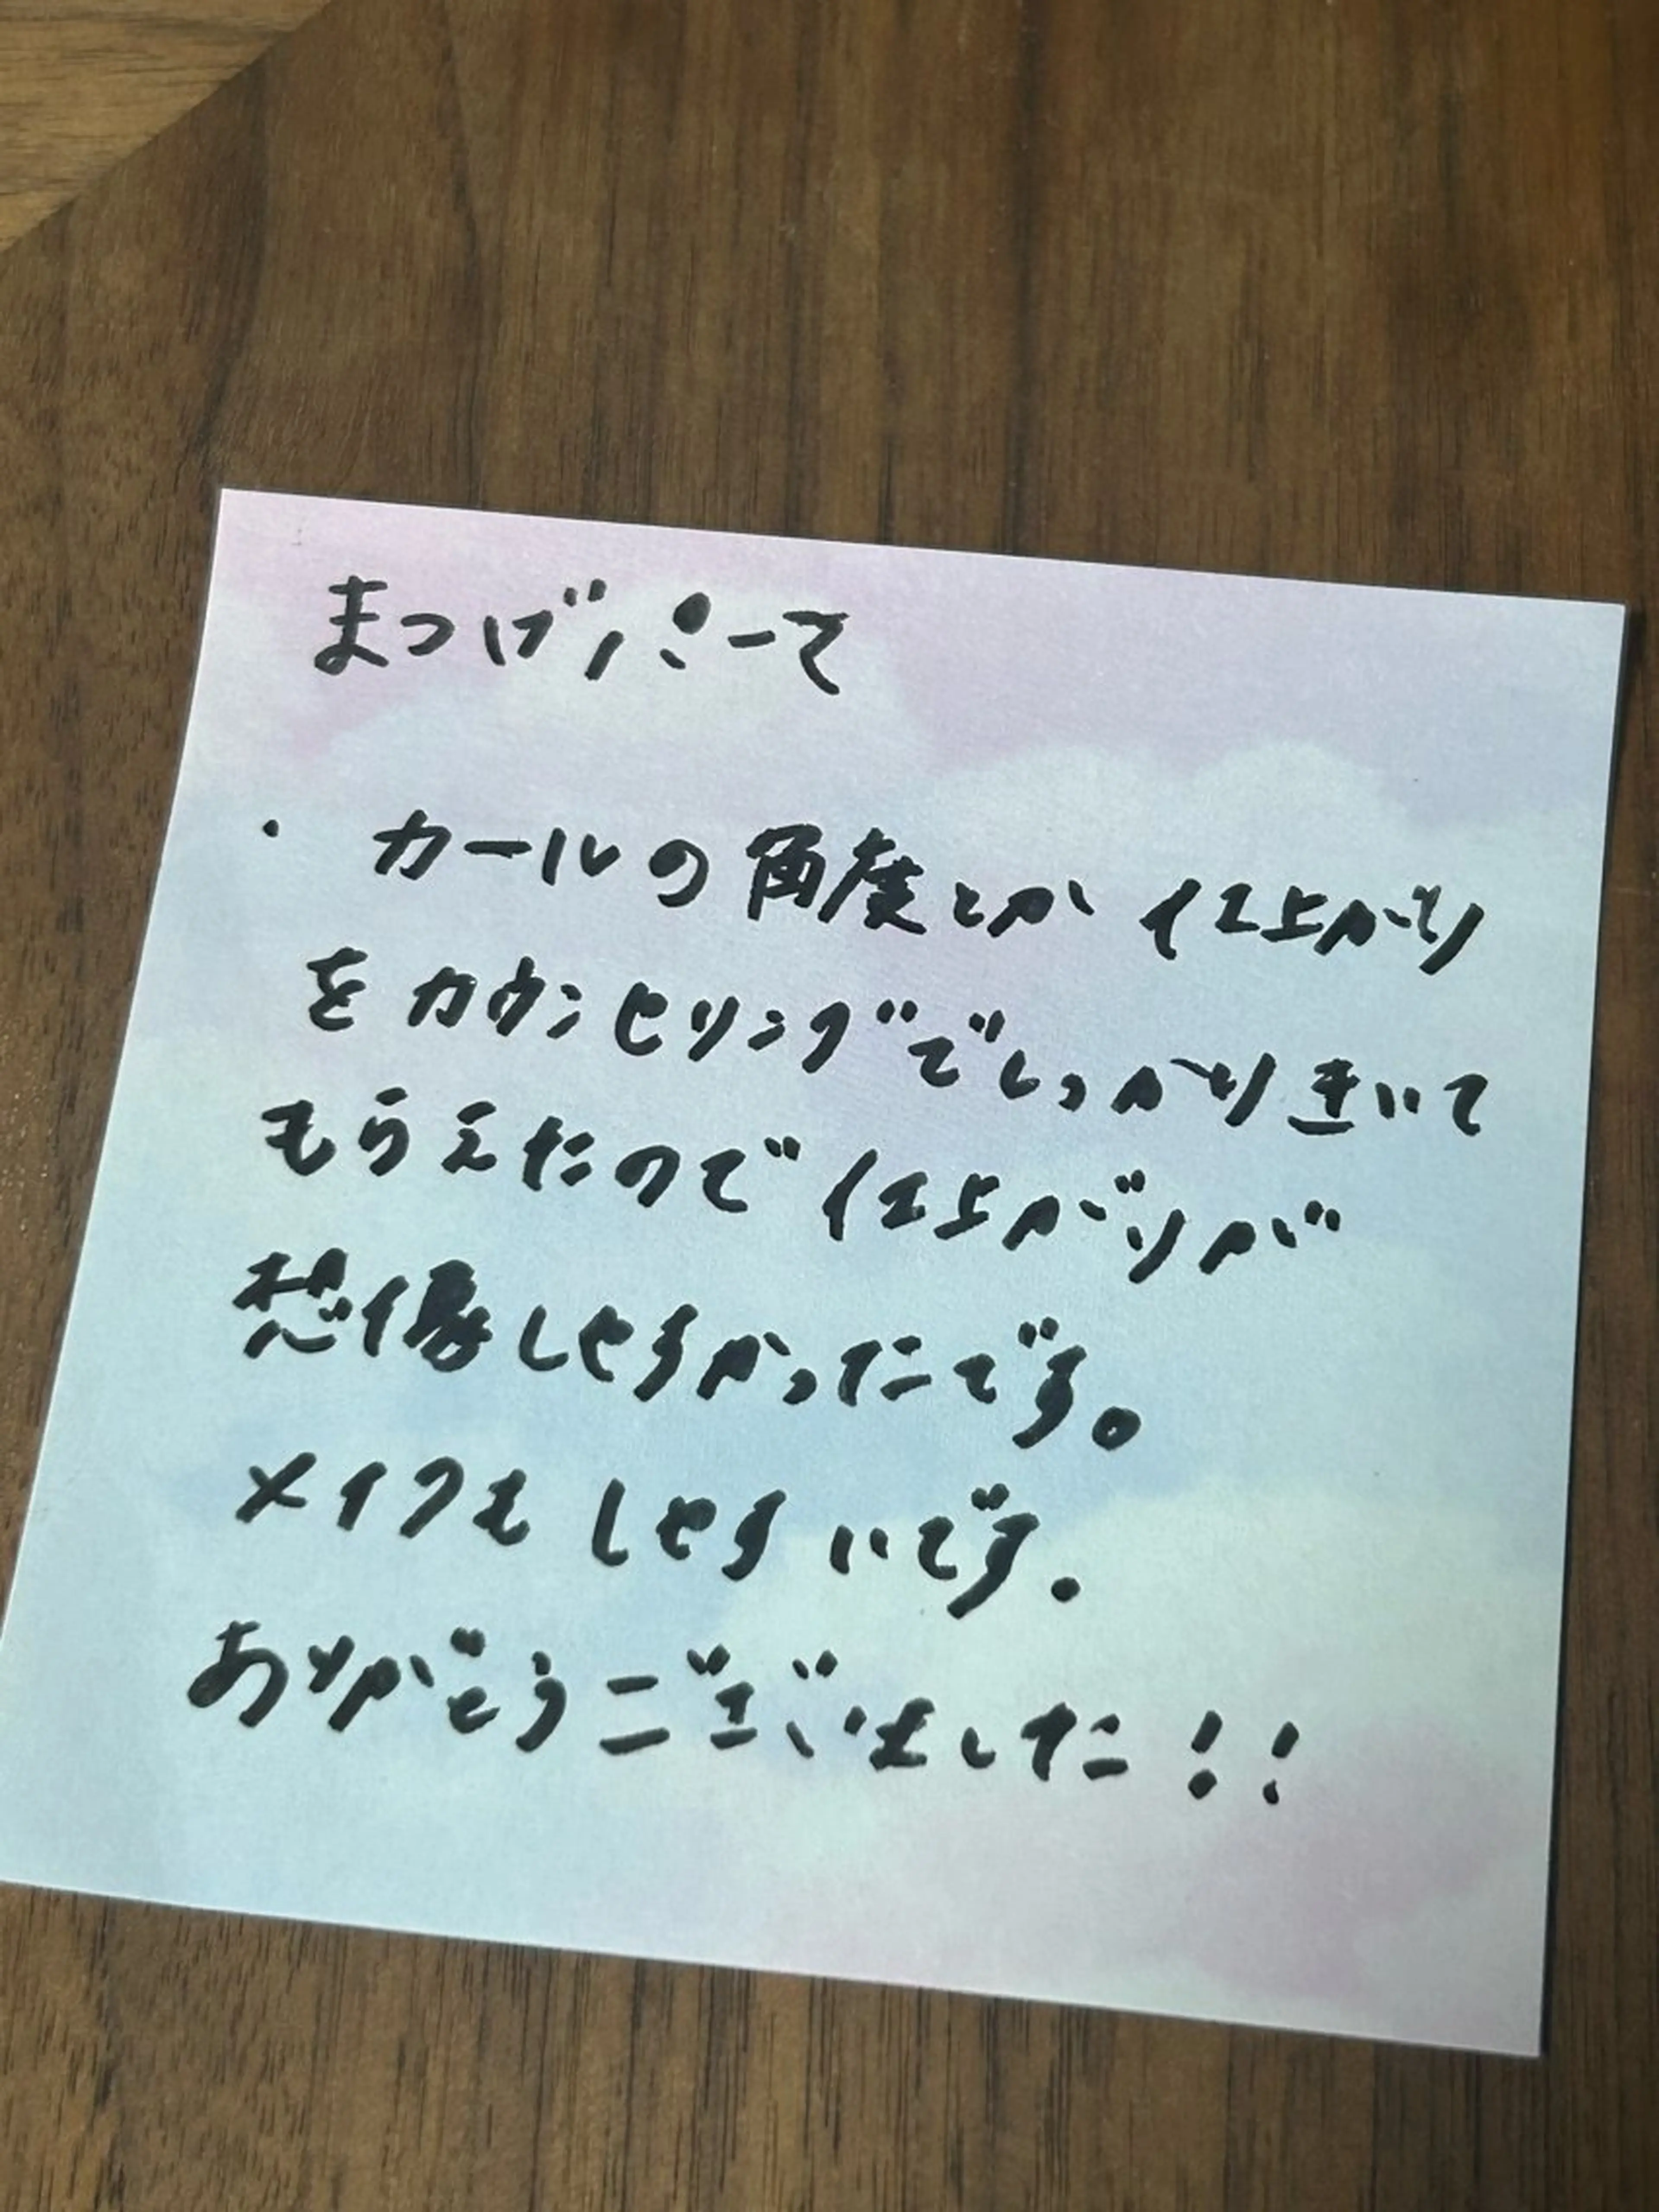 まつげパーマ
・カールの角度とか仕上がり
をカウンセリングでしっかりきいて
もらえたので仕上がりが
想像しやすかったです。
メイクもしやすいです.
ありがとうございました!!